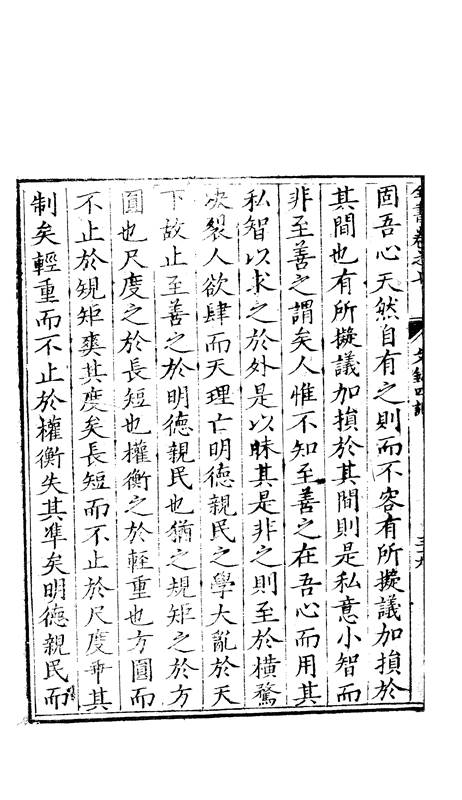 全書卷之七 文錄四說 三十九
固吾心天然自有之則而不容有所擬議加損於
其間也有所擬議加損於其間則是私意小智而
非至善之謂矣人惟不知至善之在吾心而用其
私智以求之於外是以昧其是非之則至於橫騖
决裂人欲肆而天理亡明德親民之學大亂於天
下故止至善之於明德親民也猶之規矩之於方
圓也尺度之於長短也權衡之於輕重也方圓而
不止於規矩爽其度矣長短而不止於尺度乖其
制矣輕重而不止於權衡失其準矣明德親民而